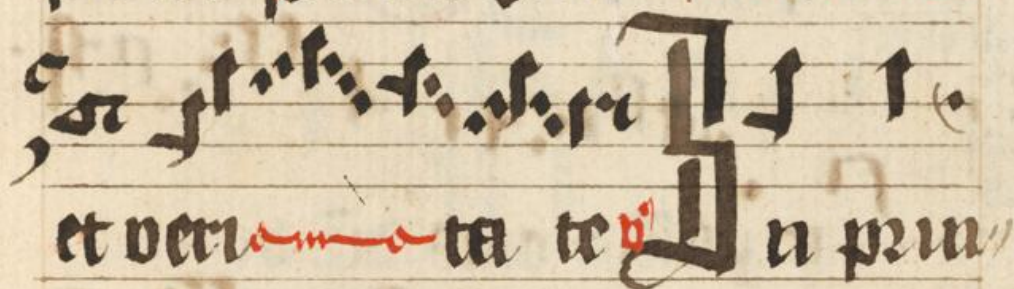 et veri ta te v In prin